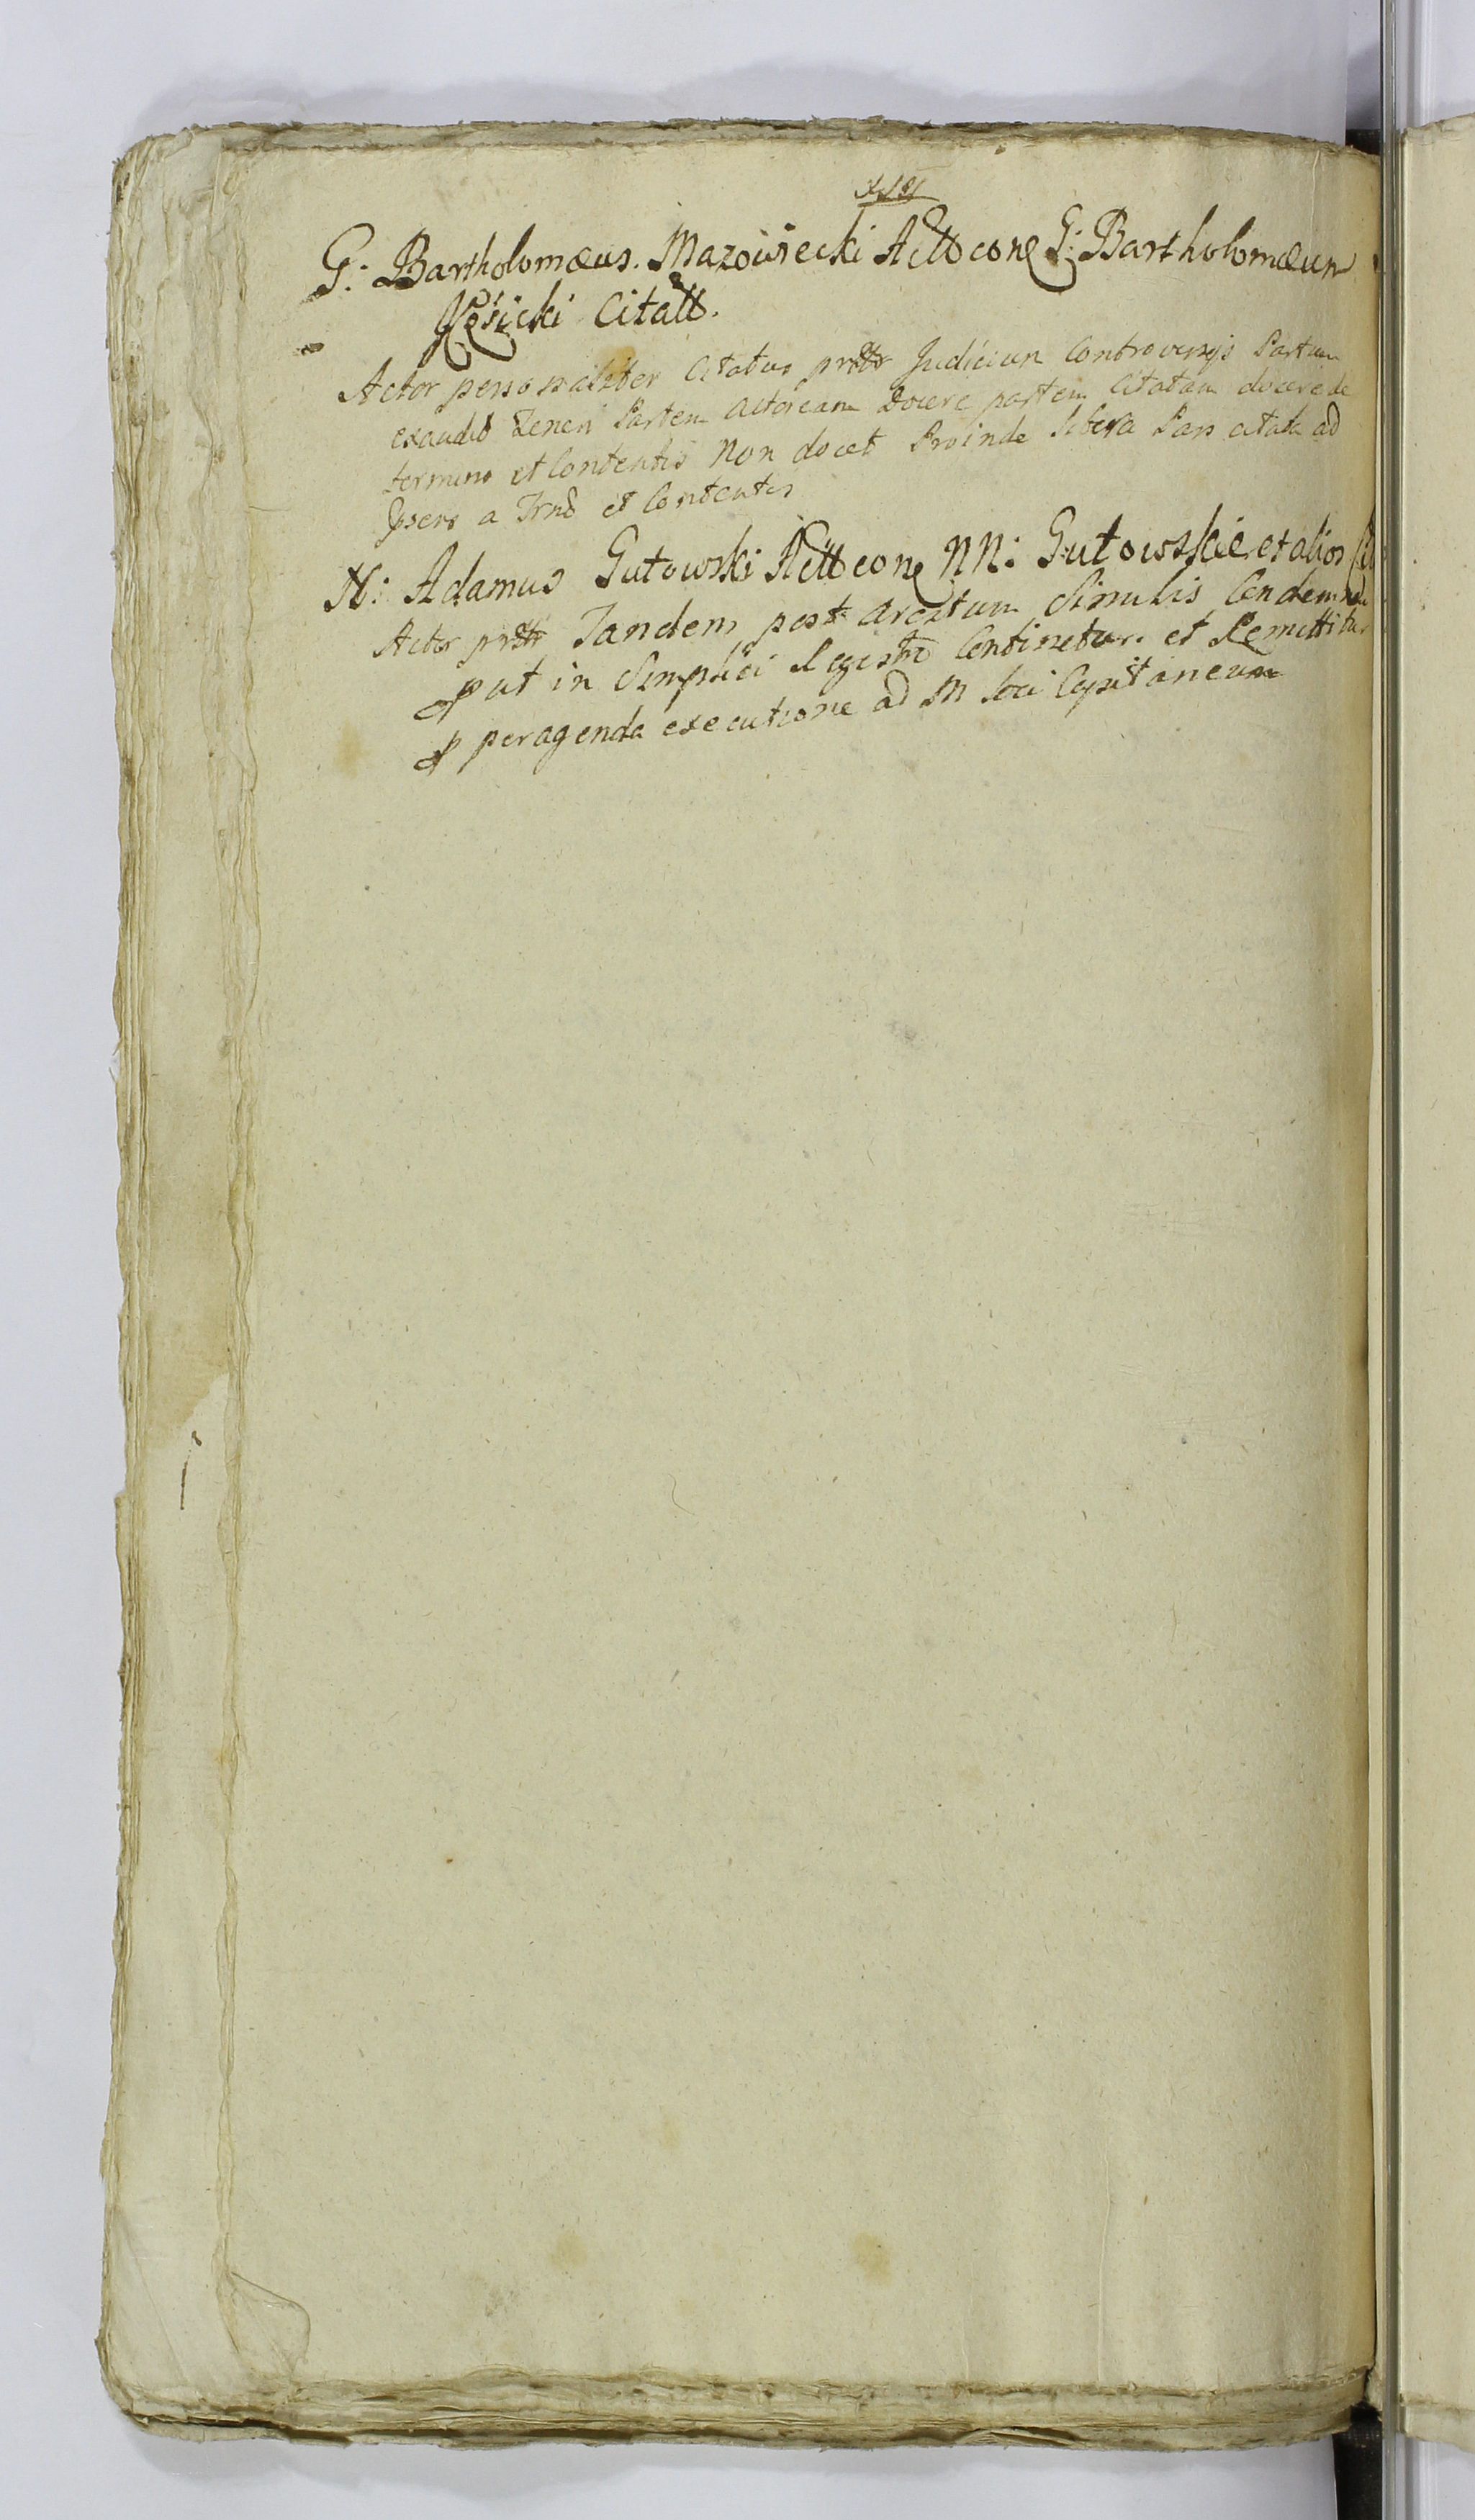 G: Bartholomæus. Mazowiecki Actt cone G: Bartholomæum
Kęsicki Citatt.
Actor personaliter Citatus prttr Judicium Controversijs Partium
exaudit tenen Partem Actoream Docere partem Citatam docere de
termino et Contentis Non docet Proinde libera Pars citata ad
a Trno et Contentis
N: Adamus Gutowski Actt cone NN: Gutowskie et alios
Actor prttr Tandem post arcatum Similis Condemna
put in Simplici Regestro Continetur. et Remittitur
p peragenda executione ad M loci Capitaneum